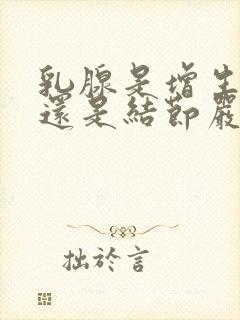 乳腺是增生
還是結節嚴
拙於言